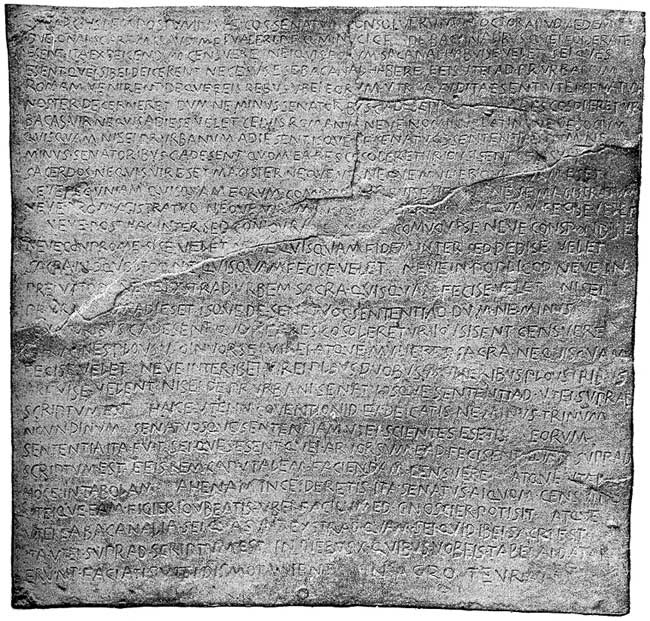 POSTVMI L F COS SENATVM CONSOLVERVNT N OCTOB APVD AEDEM
DVELONAI SC ARF M CLAVDI M F VALERI P F Q MINVCI C F DE BACANALIBVS QVEI FOIDERATEI
ESENT ITA EXDEICENDVM CENSVERE NEIQVIS EORVM BACANAL HABVISE VELET SEI QVES
ESENT QVEI SIBEI DEICERENT NECESVS ESE BACANAL HABERE EEIS VTEI AD PR VRBANVM
ROMAM VENIRENT DEQVE EEIS REBVS VBEI EORVM VTR A AVDITA ESENT VTEI SENATVS
NOSTER DECERNERET DVM NE MINVS SENATORBVS C ADESENT COSOLERETVR
BACAS VIR NEQVIS ADIESE VELET CEIVIS ROMANVS NEVE NOMINVS LATINI
QVISQVAM NISEI PR VRBANVM ADIESENT SENATVOS SENTENTIAD NE
MINVS SENATORIBVS C ADESENT QVOM EA RES COSOLERETVR IOVSISENT
SACERDOS NEQVIS VIR ESET MAGISTER NEQVE VIR NEQVE MVLIER ESET
NEVE PECVNIAM QVISQVAM EORVM COMOINEM VELET NEVE MAGISTRATVM
NEVE PRO MAGISTRATVO NEQVE VIRVM QVIQVAM FECISE VELET
NEVE POST HAC INTER SED CONIOVRASE COMVOVISE NEVE CONSPONDISE
NEVE CONPROMESISE VELET NEVE QVISQVAM FIDEM INTER SED DEDISE VELET
SACRA IN OQVOLTOD NE QVISQVAM FECISE VELET NEVE IN POPLICOD NEVE IN
PREIVATOD NEVE EXSTRAD VRBEM SACRA QVISQVAM FECISE VELET NISEI
PR VRBANVM ADIESET ISQVE DE SENATVOS SENTENTIAD DVM NE MINVS
SENATORIBVS C ADESENT QVOM EA RES COSOLERETVR IOVSISENT CENSVERE
HOMINES PLOVS V OINVORSEI VIREI ATQVE MVLIERES SACRA NE QVISQVAM
FECISE VELET NEVE INTER IBEI VIREI PLOVS DVOBVS MVLIERIBVS PLOVS TRIBVS
ARFVISE VELENT NISEI DE PR VRBANI SENATVOSQVE SENTENTIAD VTEI SVPRAD
SCRIPTVM EST HAICE VTEI IN COVENTIONID EXDEICATIS NE MINVS TRINVM
NOVNDINVM SENATVOSQVE SENTENTIAM VTEI SCIENTES ESETIS EORVM
SENTENTIA ITA FVIT SEI QVES ESENT QVEI ARVORSVM EAD FECISENT QVAM SVPRAD
SCRIPTVM EST EEIS REM CAPVTALEM FACIENDAM CENSVERE ATQVE VTEI
HOCE IN TABOLAM AHENAM INCEIDERETIS ITA SENATVS AIQVOM CENSVIT
VTEIQVE EAM FIGIER IOVBEATIS VBEI FACILVMED GNOSCIER POTISIT ATQVE
VTEI EA BACANALIA SEI QVA SVNT EXSTRAD QVAM SEI QVID IBEI SACRI EST
ITA VTEI SVPRAD SCRIPTVM EST IN DIEBVS X QVIBVS VOBEIS TABELAI DATAI
ERVNT FACIATIS VTEI DISMOTA SIENT IN AGRO TEVRANO